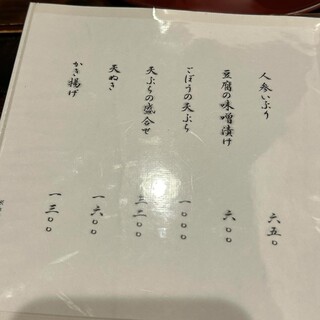 人参いぶり 六五〇
豆腐の味噌漬け 六〇〇
ごぼうの天ぷら 一〇〇〇
天ぷらの盛合せ 三二〇〇
天ぬき 一六〇〇
かき揚げ 一三〇〇